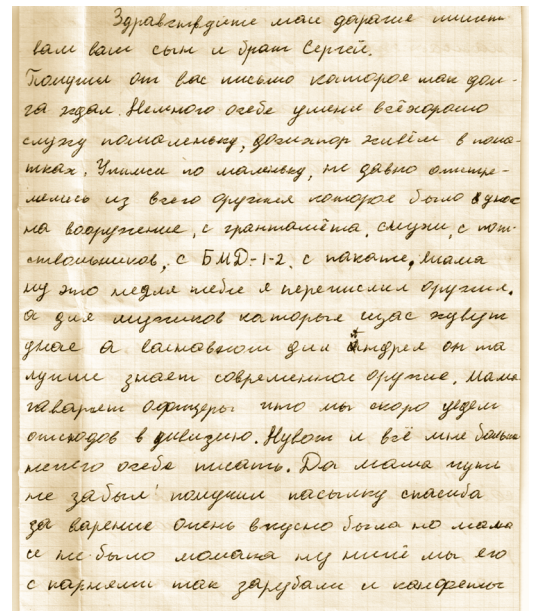 Здравствуйте маи дарагие пишет
вам ваш сын и брат Сергей.
Получил от вас письмо катарое так дол-
га ждал. Немного осебе уменя всёхорашо
служу помаленьку, досихпор живём в пала-
тках. Училися по маленьку, не давно отстре-
лелись из всего оружия которое было
на вооружение, с гранталёта, с
ствольников, с БМД-1-2, с Мама
ну это недля тебе я перечислил оружия.
а для мужиков каторые щас живут
унас а восновном для Андрея он та
лутше знает современное оружие. Мама
гаварят офицеры што мы скоро уедем
отсюдов в дивизию. Нувот и всё мне больше
нечего осебе писать. Да мама чуть
не забыл! получил пасылку спасиба
за варение очень вкусно была но мама
се не было малака ну ничё мы его
с парнями так зарубали и канфеты